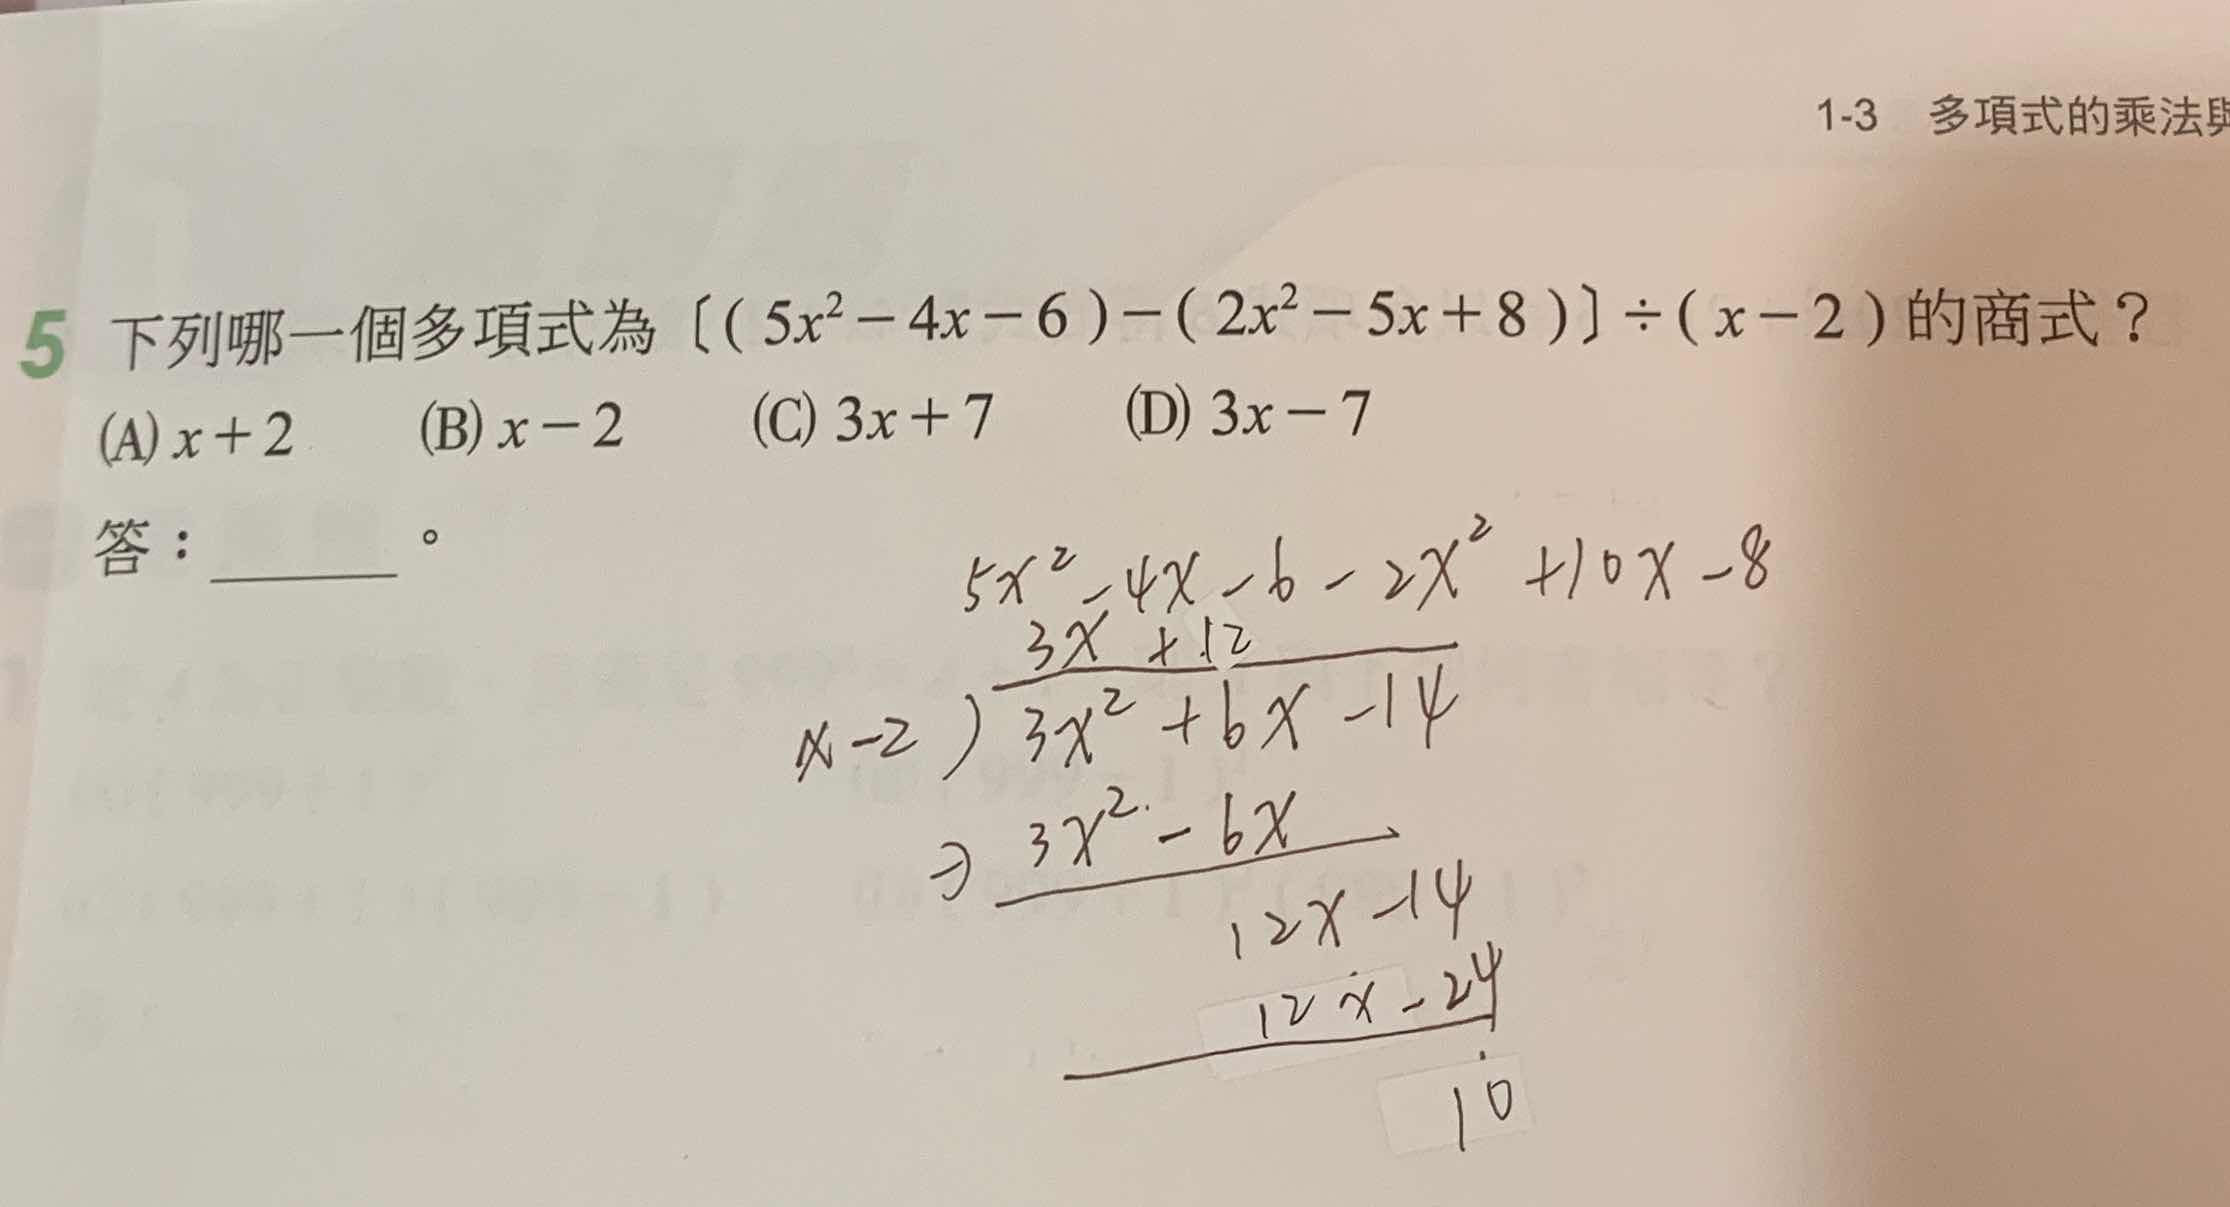 1-3 多項式的乘法與
5 下列哪一個多項式為〔(5x²－4x－6)－(2x²－5x＋8)〕÷(x－2)的商式？
(A) x＋2 (B) x－2 (C) 3x＋7 (D) 3x－7
答：______。
5x² -4x -6 -2x² +10x -8
3x +12
x-2 ) 3x² +6x -14
⇒ 3x² - 6x
12x -14
12x -24
10